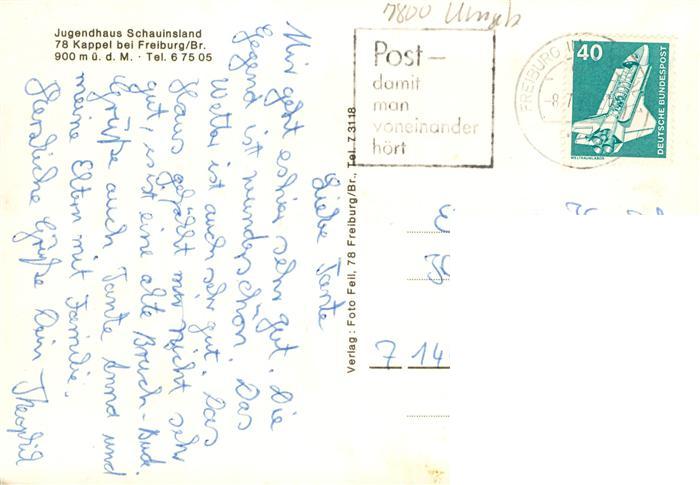 Jugendhaus Schauinsland
78 Kappel bei Freiburg/Br.
900 m ü. d. M. · Tel. 6 75 05
7800
Post –
damit
man
voneinander
hört
FREIBURG
-8.7
40
DEUTSCHE BUNDESPOST
WELTRAUMLABOR
Liebe Tante
Mir geht es hier sehr gut. Die
Gegend ist wunderschön. Das
Wetter ist auch sehr gut. Das
Haus gefällt mir nicht sehr
gut, es ist eine alte Bruch-Bude.
Grüße auch Tante Anna und
meine Eltern mit Familie.
Herzliche Grüße Dein Theophil
Verlag: Foto Feil, 78 Freiburg/Br., Tel. 7 31 18
7 14